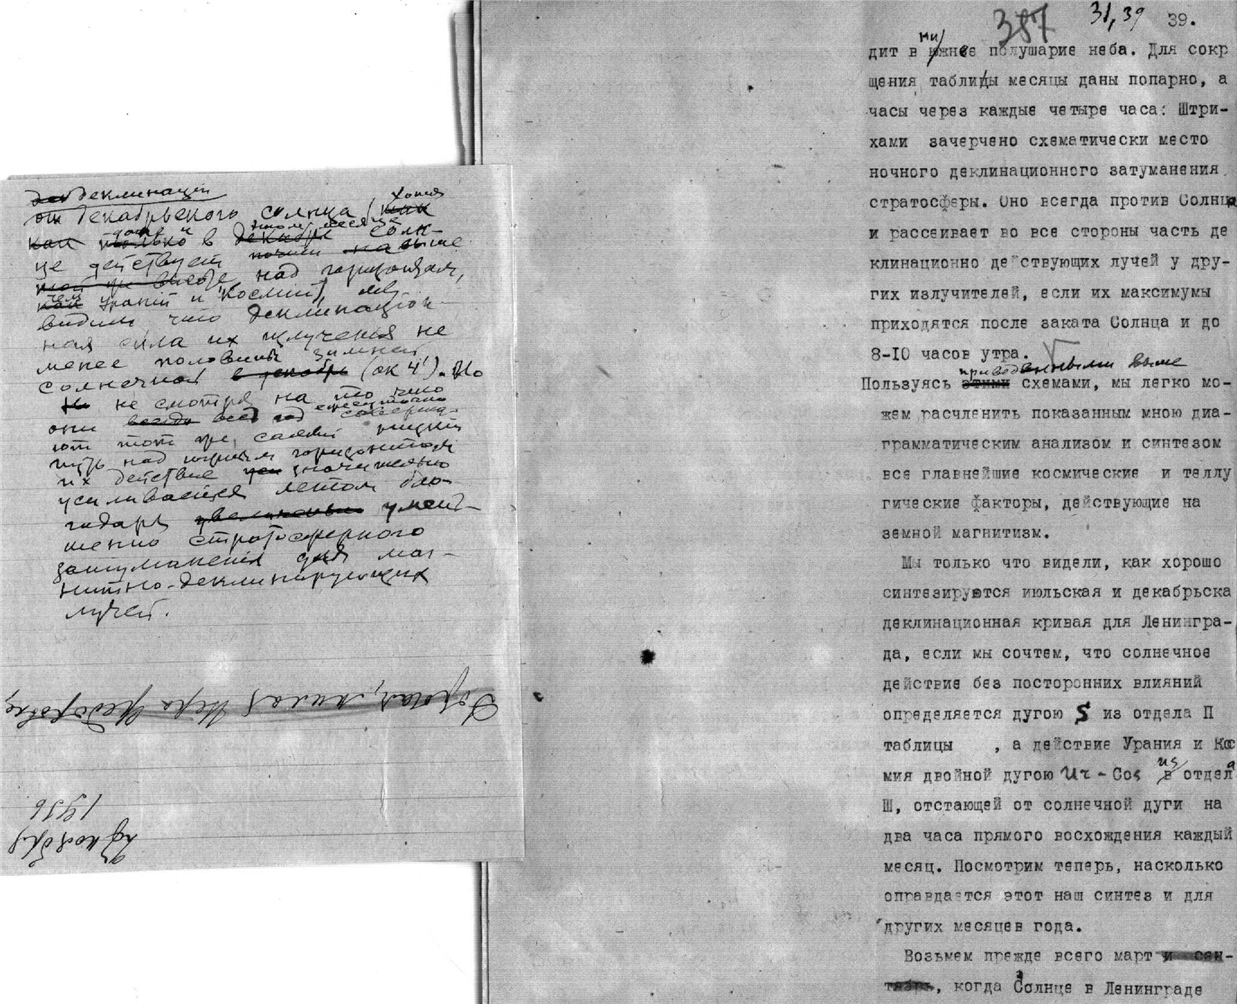 декабрьского солнца
в
це действует
над горизонтом,
Ураний и Космий, мы
видим что деклинацион-
ная сила их излучения не
менее половины зимней
солнечной (ок 4'). Но
не смотря на то что
они
ют тот же самый
путь над горизонтом
их действие значительно
усиливается летом бла-
годаря умень-
шению стратосферного
затуманения для маг-
нитно-деклинирующих
лучей.
Дорогая, милая Вера Федоровна,
1936
387 31,39 39.
дит в южнее полушарие неба. Для сокр
щения таблицы месяцы даны попарно, а
часы через каждые четыре часа: Штри-
хами зачерчено схематически место
ночного деклинационного затуманения
стратосферы. Оно всегда против Солнца
и рассеивает во все стороны часть де
клинационно действующих лучей у дру-
гих излучителей, если их максимумы
приходятся после заката Солнца и до
8-10 часов утра.
приведенными выше
Пользуясь этими схемами, мы легко мо-
жем расчленить показанным мною диа-
грамматическим анализом и синтезом
все главнейшие космические и теллу
гические факторы, действующие на
земной магнитизм.
Мы только что видели, как хорошо
синтезируются июльская и декабрьска
деклинационная кривая для Ленингра-
да, если мы сочтем, что солнечное
действие без посторонних влияний
определяется дугою S из отдела П
таблицы , а действие Урания и Кос
мия двойной дугою из отдела
Ш, отстающей от солнечной дуги на
два часа прямого восхождения каждый
месяц. Посмотрим теперь, насколько
оправдается этот наш синтез и для
других месяцев года.
Возьмем прежде всего март и сен-
тябрь, когда Солнце в Ленинграде